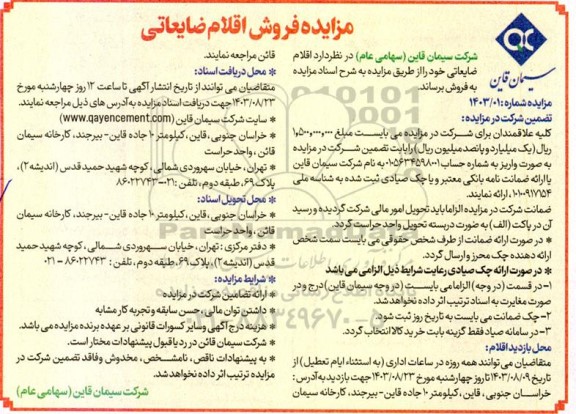 مزایده فروش اقلام ضایعاتی
سیمان قاین
شرکت سیمان قاین (سهامی عام) در نظر دارد اقلام
ضایعاتی خود را از طریق مزایده به شرح اسناد مزایده
به فروش برساند.
مزایده شماره: ۱۴۰۳/۰۱
تضمین شرکت در مزایده:
کلیه علاقمندان برای شرکت در مزایده می بایست مبلغ ۱,۵۰۰,۰۰۰,۰۰۰
ریال (یک میلیارد و پانصد میلیون ریال) را بابت تضمین شرکت در مزایده
به صورت واریز به شماره حساب ۰۱۰۵۶۳۴۵۹۸۰۰ به نام شرکت سیمان قاین
یا ارائه ضمانت نامه بانکی معتبر و یا چک صیادی ثبت شده به شناسه ملی
۱۰۱۰۰۹۱۷۱۵۴ ، ارائه نمایند.
ضمانت شرکت در مزایده الزاما باید تحویل امور مالی شرکت گردیده و رسید
آن در پاکت (الف) به صورت دربسته تحویل واحد حراست گردد.
* در صورت ارائه ضمانت از طرف شخص حقوقی می بایست سمت شخص
ارائه دهنده چک محرز و ارسال گردد.
* در صورت ارائه چک صیادی رعایت شرایط ذیل الزامی می باشد
۱- در قسمت (در وجه) الزامی بایست (در وجه سیمان قاین) درج و در
صورت مغایرت به اسناد ترتیب اثر داده نخواهد شد.
۲- چک ضمانت می بایست به تاریخ روز ثبت شود.
۳- در سامانه صیاد فقط گزینه بابت خرید کالا انتخاب گردد.
محل بازدید اقلام:
متقاضیان می توانند همه روزه در ساعات اداری (به استثناء ایام تعطیل) از
تاریخ ۱۴۰۳/۰۸/۰۹ تا روز چهارشنبه مورخ ۱۴۰۳/۰۸/۲۳ جهت بازدید به آدرس:
خراسان جنوبی ، قاین، کیلومتر ۱۰ جاده قاین- بیرجند، کارخانه سیمان
قائن مراجعه نمایند.
* محل دریافت اسناد:
متقاضیان می توانند از تاریخ انتشار آگهی تا ساعت ۱۲ روز چهارشنبه مورخ
۱۴۰۳/۰۸/۲۳ جهت دریافت اسناد مزایده به آدرس های ذیل مراجعه نمایند.
* سایت شرکت سیمان قاین (www.qayencement.com)
* خراسان جنوبی ، قاین، کیلومتر ۱۰ جاده قاین- بیرجند، کارخانه سیمان
قائن ، واحد حراست
* تهران ، خیابان سهروردی شمالی ، کوچه شهید حمید قدس (اندیشه ۲)،
پلاک ۶۹، طبقه دوم، تلفن : ۰۲۱-۸۶۰۲۲۷۴۳
* محل تحویل اسناد:
* خراسان جنوبی ، قاین، کیلومتر ۱۰ جاده قاین- بیرجند، کارخانه سیمان
قائن، واحد حراست
* دفتر مرکزی : تهران ، خیابان سهروردی شمالی ، کوچه شهید حمید
قدس (اندیشه ۲)، پلاک ۶۹، طبقه دوم ، تلفن : ۸۶۰۲۲۷۴۳-۰۲۱
* شرایط مزایده:
* ارائه تضمین شرکت در مزایده
* داشتن توان مالی ، حسن سابقه و تجربه کار مشابه
* هزینه درج آگهی و سایر کسورات قانونی بر عهده برنده مزایده می باشد.
* شرکت سیمان قائن در رد یا قبول پیشنهادات مختار است.
* به پیشنهادات ناقص ، نامشخص ، مخدوش و فاقد تضمین شرکت در
مزایده ترتیب اثر داده نخواهد شد.
شرکت سیمان قاین (سهامی عام)